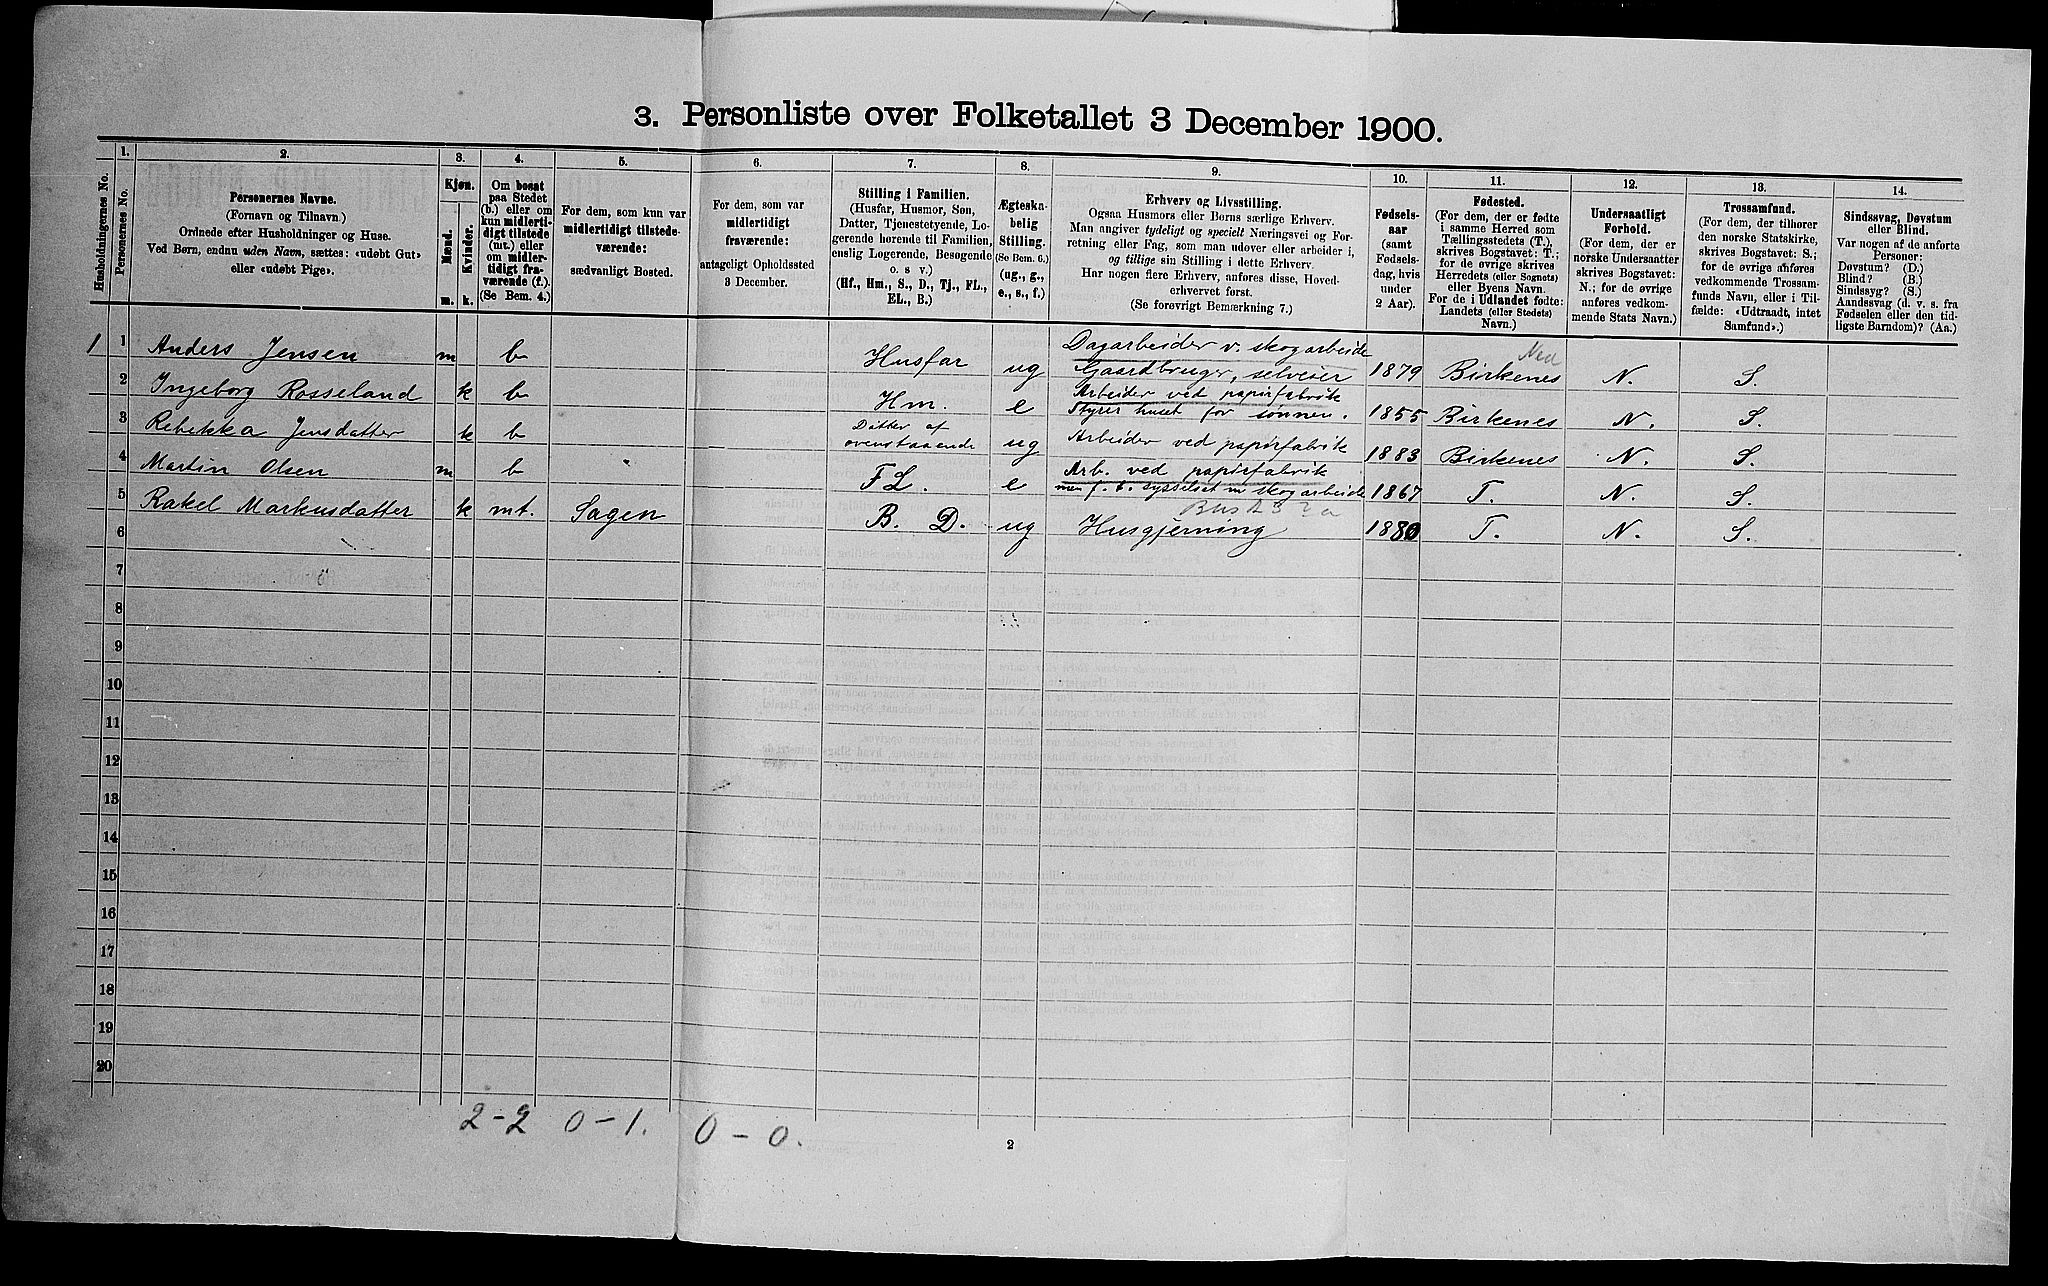 3. Personliste over Folketallet 3 December 1900.
1. 2. 3. 4. 5. 6. 7. 8. 9. 10. 11. 12. 13. 14.
Husholdningernes No.
Personernes No.
Personernes Navne.
(Fornavn og Tilnavn.)
Ordnede efter Husholdninger og Huse.
Ved Børn, endnu uden Navn, sættes: «udøbt Gut»
eller «udøbt Pige».
Kjøn.
Mænd.
Kvinder.
m. k.
Om bosat
paa Stedet
(b.) eller om
kun midlerti-
digt tilstede
(mt.) eller
om midler-
tidigt fra-
værende (f.).
(Se Bem. 4.)
For dem, som kun var
midlertidigt tilstede-
værende:
sædvanligt Bosted.
For dem, som var
midlertidigt
fraværende:
antageligt Opholdssted
3 December.
Stilling i Familien.
(Husfar, Husmor, Søn,
Datter, Tjenestetyende, Lo-
gerende hørende til Familien,
enslig Logerende, Besøgende
o. s v.)
(Hf., Hm., S., D., Tj., FL.,
EL., B.)
Ægteska-
belig
Stilling.
(Se Bem. 6.)
(ug., g.,
e., s., f.)
Erhverv og Livsstilling.
Ogsaa Husmors eller Børns særlige Erhverv.
Man angiver tydeligt og specielt Næringsvei og For-
retning eller Fag, som man udøver eller arbeider i,
og tillige sin Stilling i dette Erhverv.
Har nogen flere Erhverv, anføres disse, Hoved-
erhvervet først.
(Se forøvrigt Bemærkning 7.)
Fødsels-
aar
(samt
Fødsels-
dag, hvis
under
2 Aar).
Fødested.
(For dem, der er fødte
i samme Herred som
Tællingsstedets (T.),
skrives Bogstavet: T.;
for de øvrige skrives
Herredets (eller Sognets)
eller Byens Navn.
For de i Udlandet fødte:
Landets (eller Stedets)
Navn.)
Undersaatligt
Forhold.
(For dem, der er
norske Undersaatter
skrives Bogstavet:
N.; for de øvrige
anføres vedkom-
mende Stats Navn.)
Trossamfund.
(For dem, der tilhører
den norske Statskirke,
skrives Bogstavet: S.;
for de øvrige anføres
vedkommende Trossam-
funds Navn, eller i Til-
fælde: «Udtraadt, intet
Samfund».)
Sindssvag, Døvstum
eller Blind.
Var nogen af de anførte
Personer:
Døvstum? (D.)
Blind? (B.)
Sindssyg? (S.)
Aandssvag (d. v. s. fra
Fødselen eller den tid-
ligste Barndom)? (Aa.)
1 1 Anders Jensen m b Husfar ug Dagarbeider v. skogarbeide
Gaardbruger, selveier 1879 Birkenes N. S.
2 Ingeborg Rosseland k b Hm. e Arbeider ved papirfabrik
Styrer huset for sønnen. 1855 Birkenes N. S.
3 Rebekka Jensdatter k b Datter af
ovenstaaende ug Arbeider ved papirfabrik 1883 Birkenes N. S.
4 Martin Olsen m b FL. e Arb. ved papirfabrik
men f. t. sysselsat m skogarbeide 1867 T. N. S.
5 Rakel Markusdatter k mt. Sagen B. D. ug Husgjerning 1880 T. N. S.
6
7
8
9
10
11
12
13
14
15
16
17
18
19
20
2-2 0-1. 0-0.
2